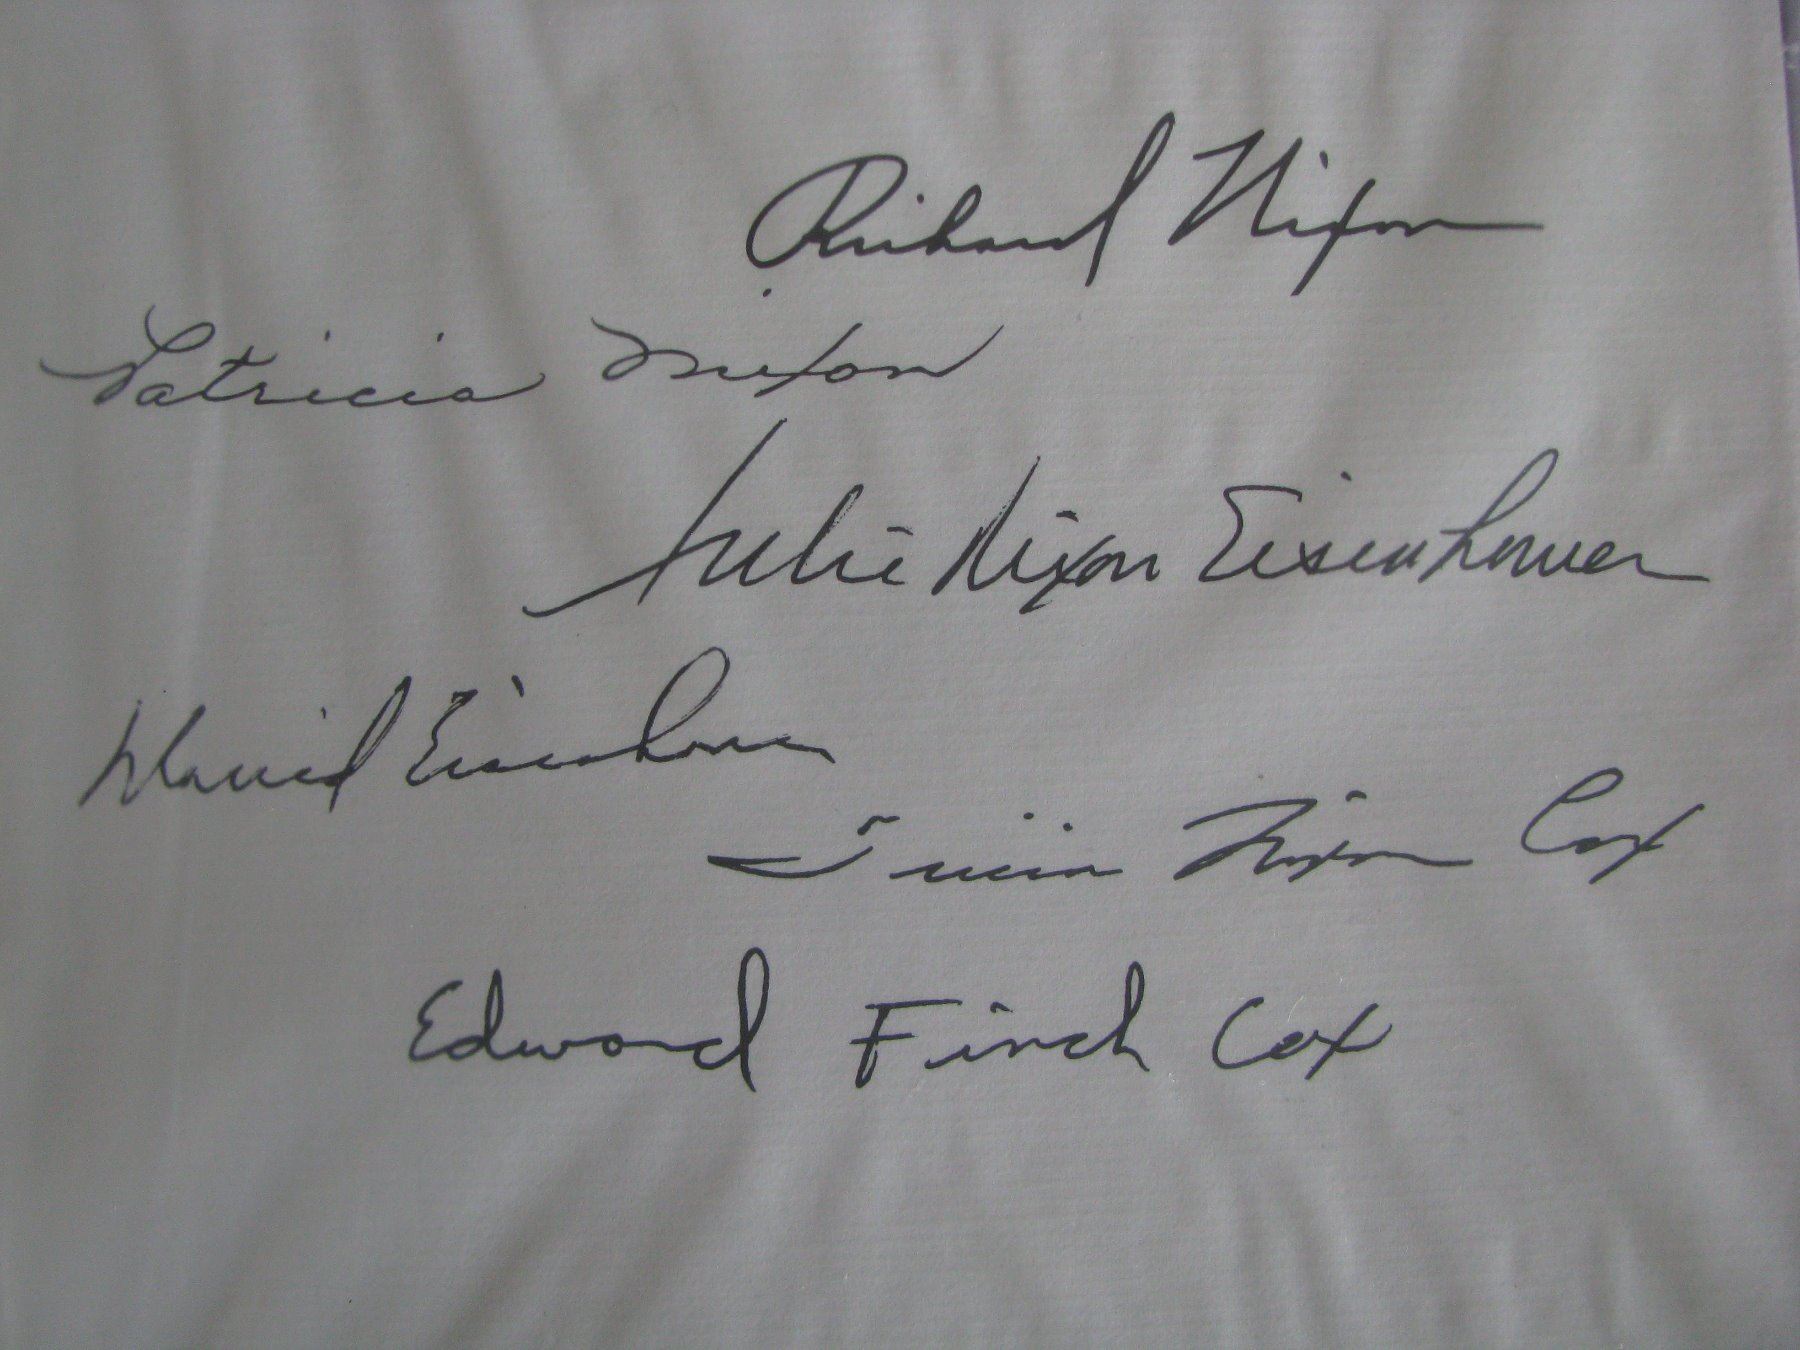 Richard Nixon
Patricia Nixon
Julie Nixon Eisenhower
David Eisenhower
Tricia Nixon Cox
Edward Finch Cox